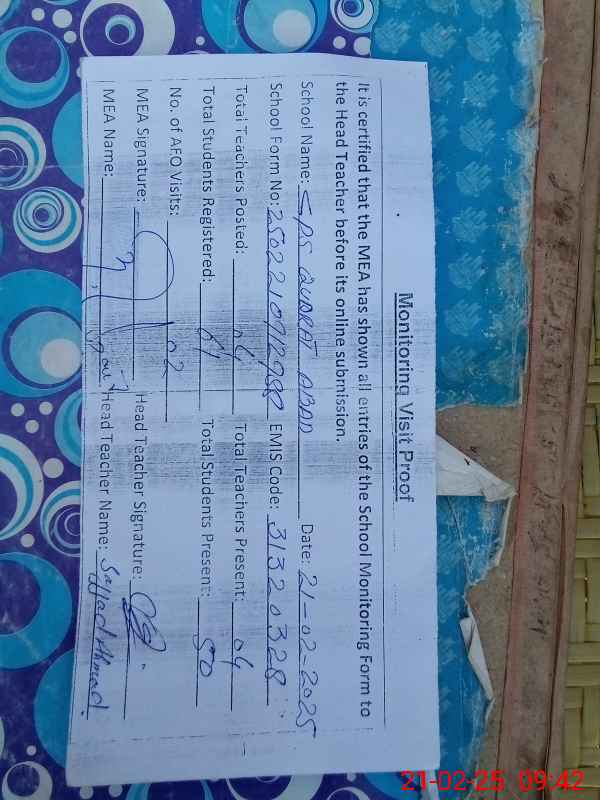 Monitoring Visit Proof
It is certified that the MEA has shown all entries of the School Monitoring Form to
the Head Teacher before its online submission.
School Name: GPS QUDRAT ABAD Date: 21-02-2025
School Form No: 25022210912988 EMIS Code: 31320328
Total Teachers Posted: 04 Total Teachers Present: 04
Total Students Registered: Total Students Present: 50
No. of AFO Visits: 02
MEA Signature: Head Teacher Signature:
MEA Name: Head Teacher Name: Sajjad Ahmad.
21-02-25 09:42